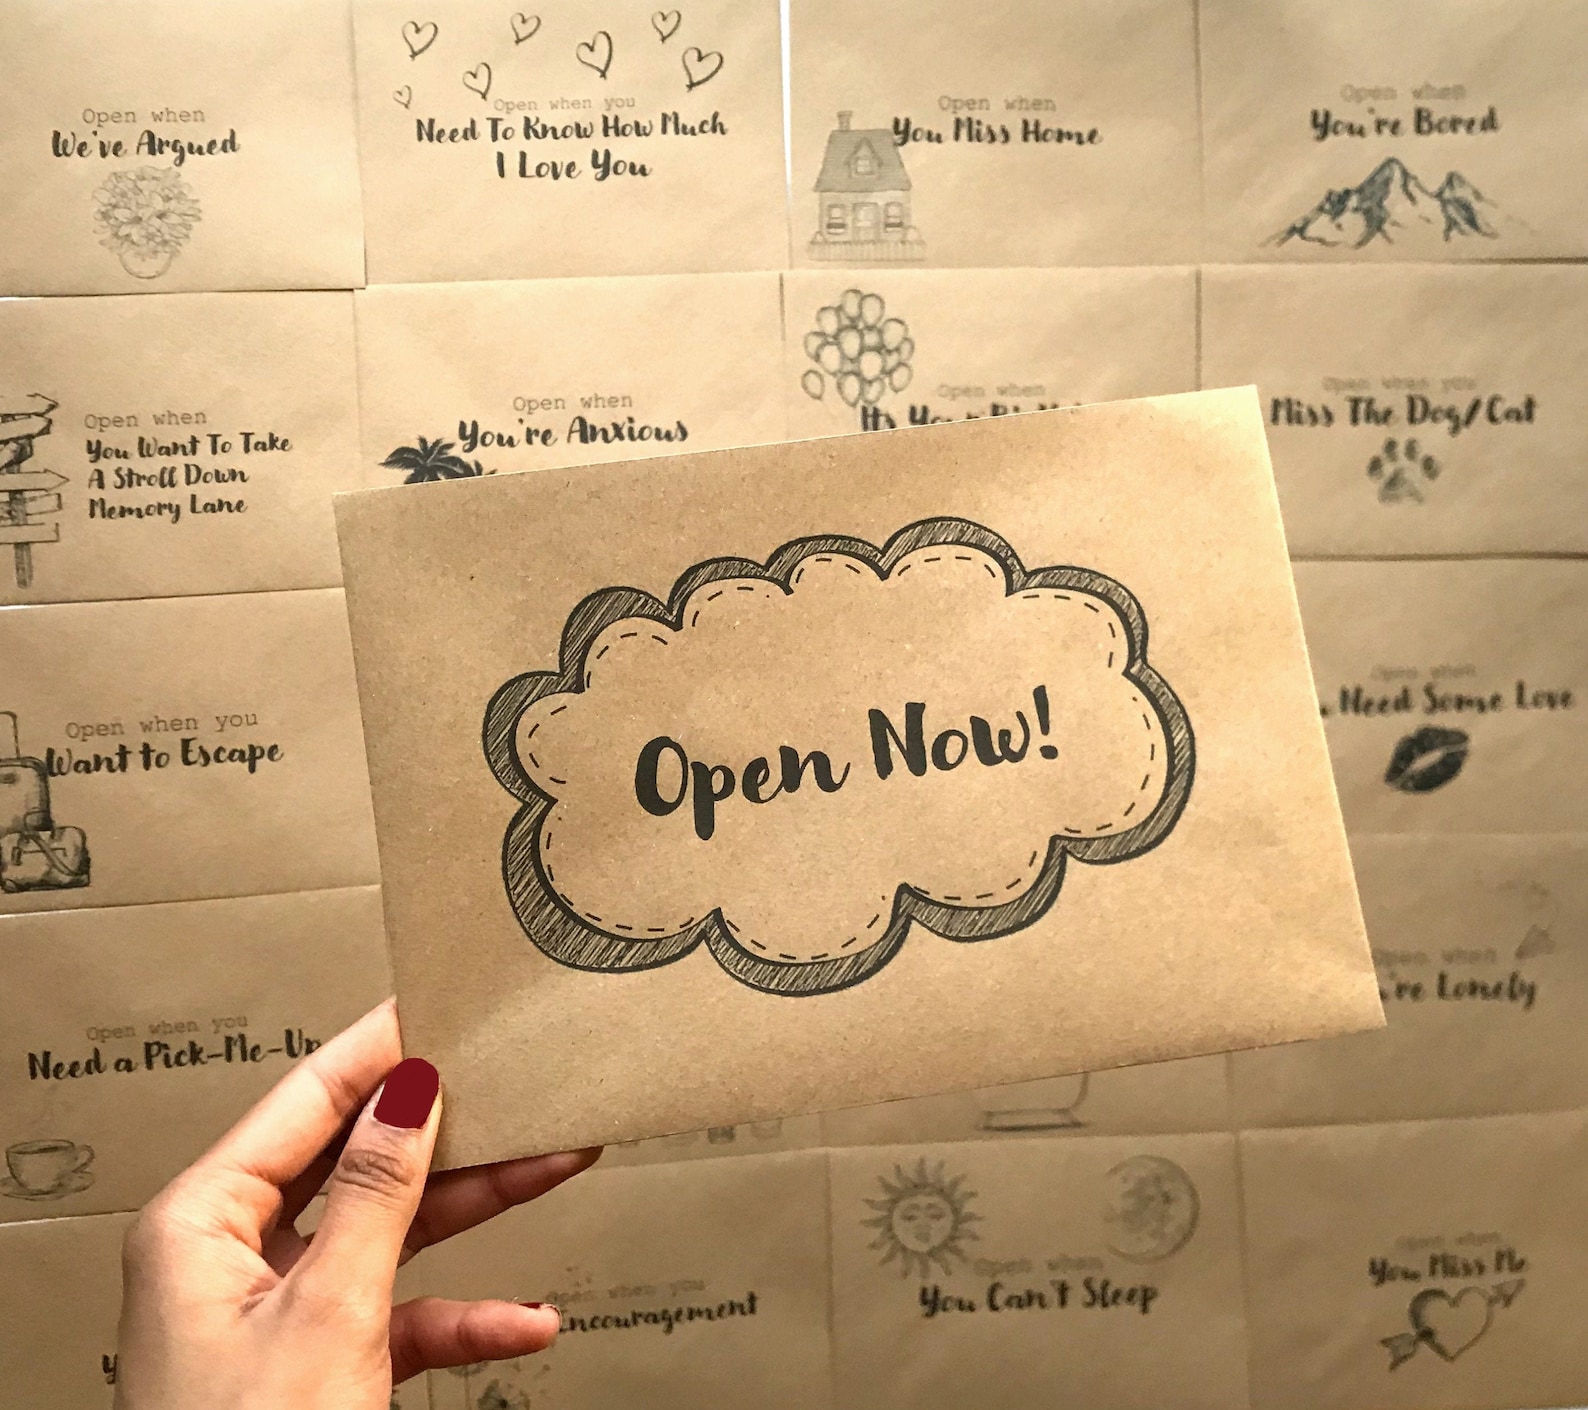 Open when
We've Argued
Open when you
Need To Know How Much
I Love You
Open when
You Miss Home
Open when
You're Bored
Open when
You Want To Take
A Stroll Down
Memory Lane
Open when
You're Anxious
Open when
It's Your
Open when you
Miss The Dog/Cat
Open when you
Want to Escape
Open Now!
Open when
Need Some Love
Open when you
Need a Pick-Me-Up
Open when
're Lonely
Open when you
Encouragement
Open when
You Can't Sleep
Open when
You Miss Me